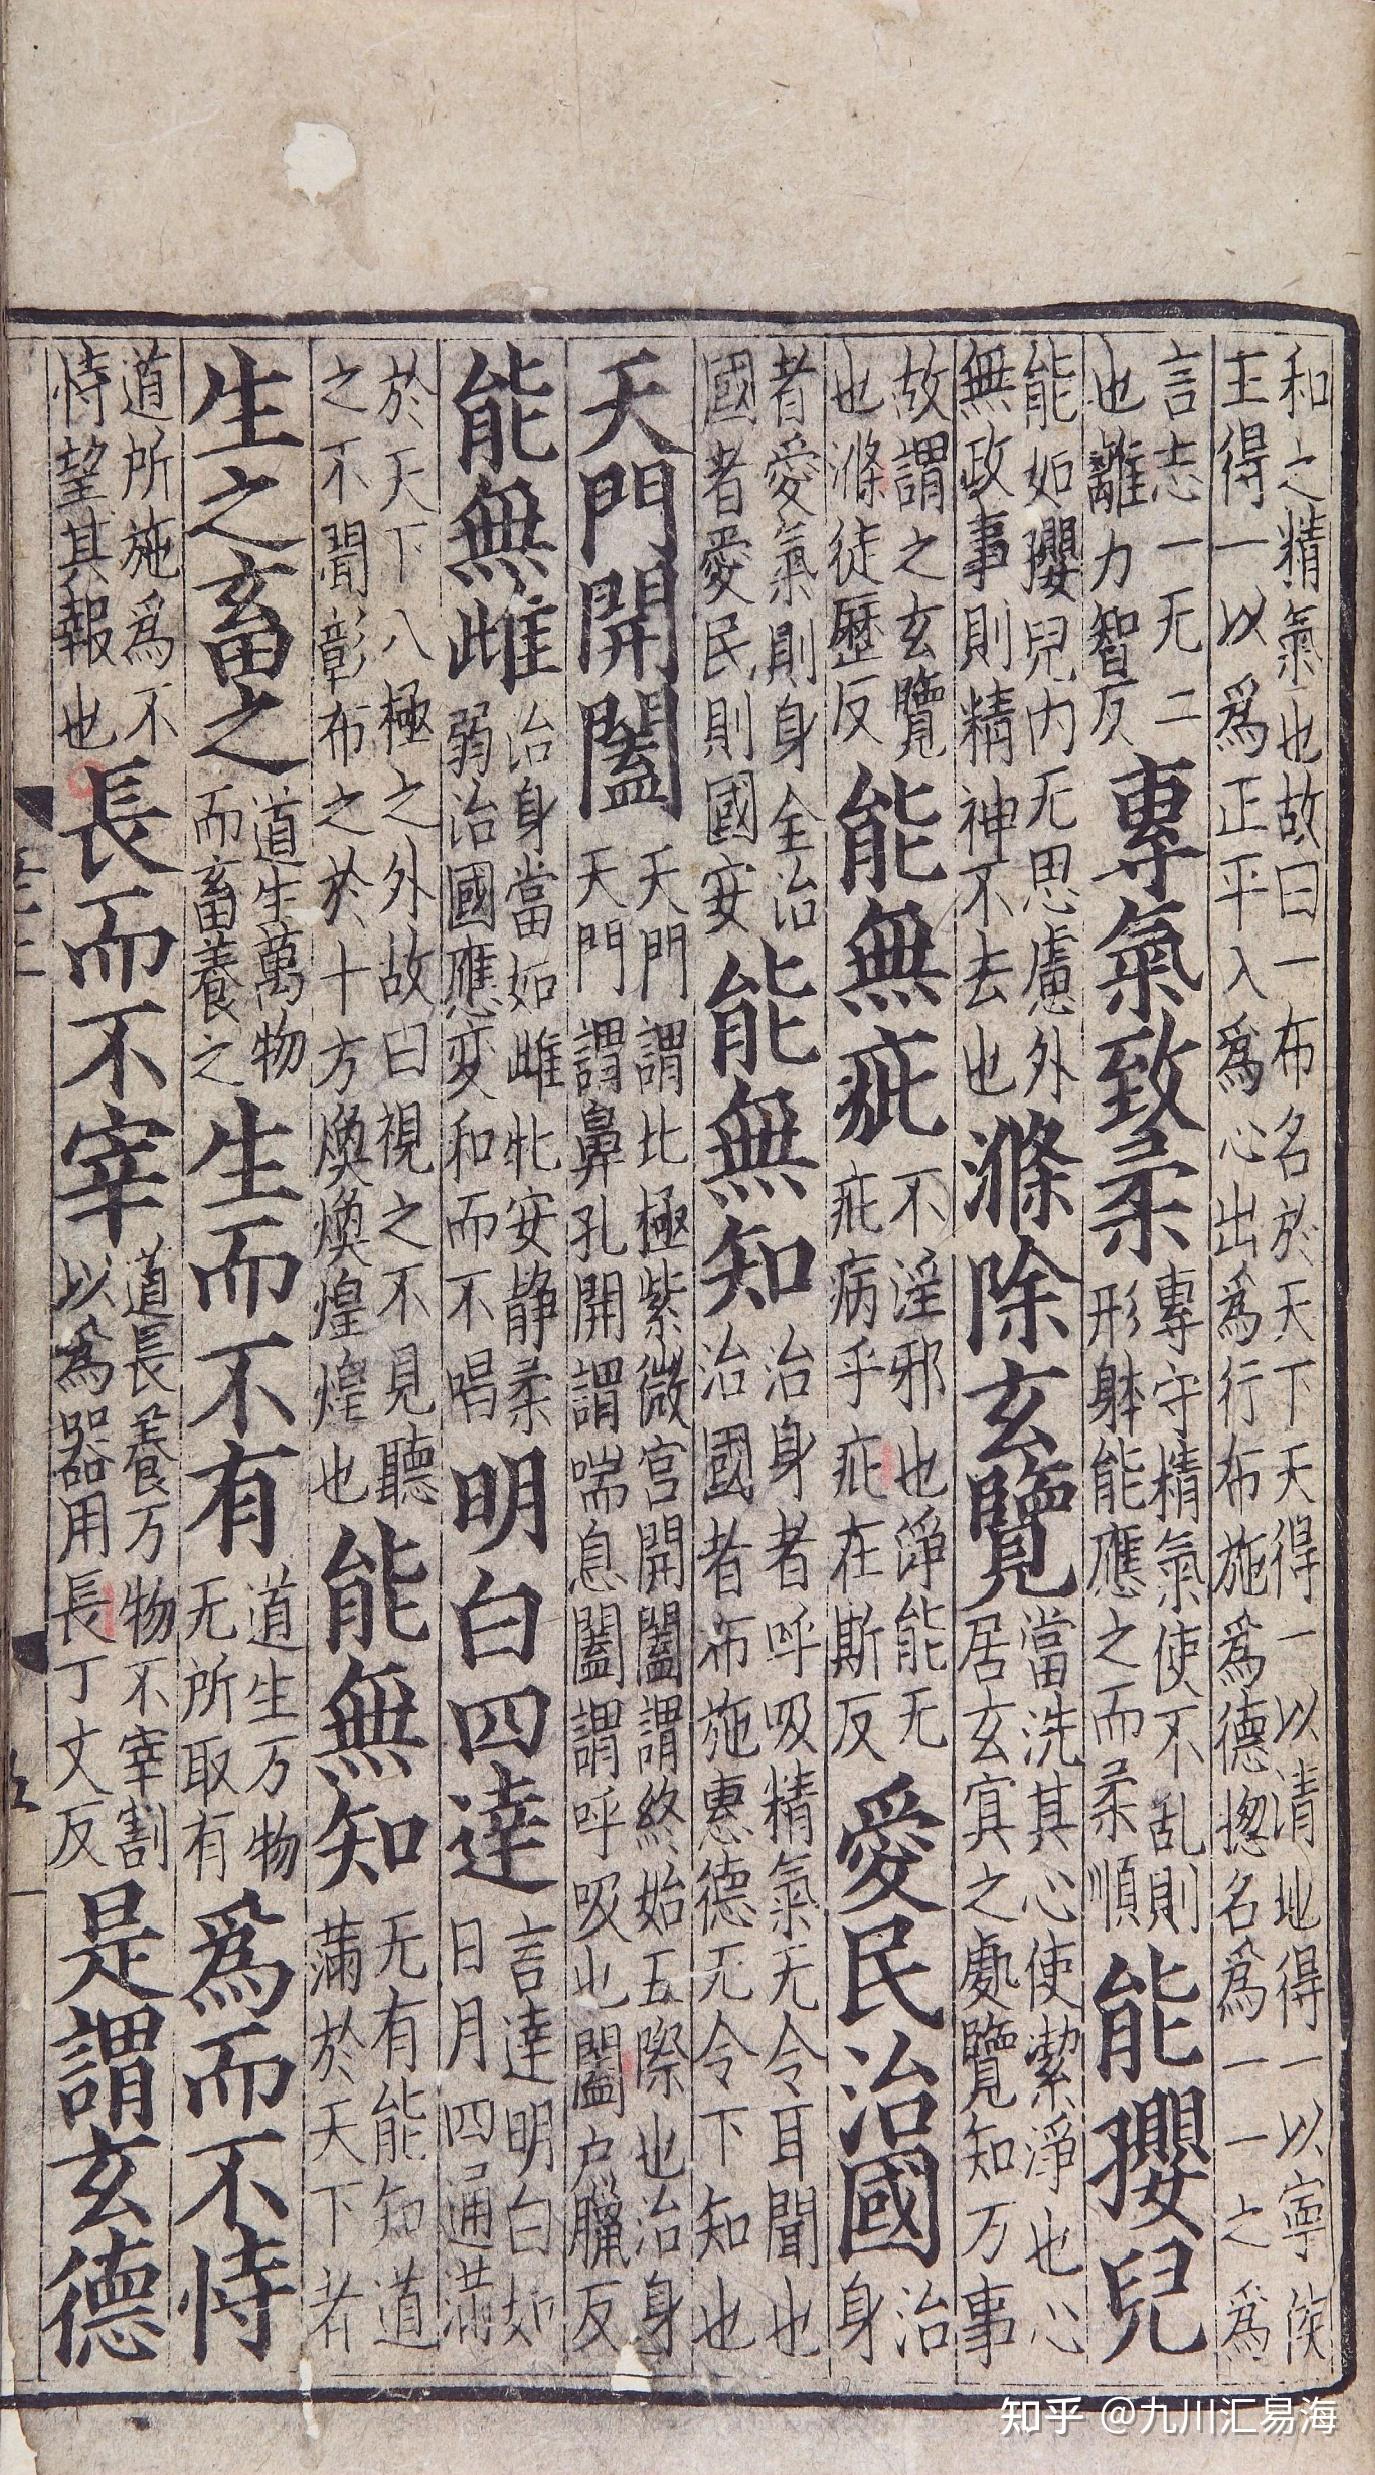 和之精氣也故曰一布名於天下天得一以清地得一以寧侯
王得一以爲正平入爲心出爲行布施爲德揔名爲一一之爲
言志一无二
也離力智反
專氣致柔
專守精氣使不乱則
形躰能應之而柔順
能孾兒
能如孾兒内无思慮外
無政事則精神不去也
滌除玄覽
當洗其心使潔淨也心
居玄㝠之處覽知万事
故謂之玄覽
也滌徒歷反
能無疵
不淫邪也淨能无
疵病乎疵在斯反
愛民治國
治
身
者愛氣則身全治
國者愛民則國安
能無知
治身者呼吸精氣无令耳聞也
治國者布施惠德无令下知也
天門開闔
天門謂北極紫微宫開闔謂終始五際也治身
天門謂鼻孔開謂喘息闔謂呼吸也闔户臘反
能無雌
治身當如雌牝安静柔
弱治國應変和而不唱
明白四逹
言逹明白如
日月四通滿
於天下八極之外故曰視之不見聽
之不聞彰布之於十方煥煥煌煌也
能無知
无有能知道
滿於天下者
生之畜之
道生萬物
而畜養之
生而不有
道生万物
无所取有
爲而不恃
道所施爲不
恃望其報也
長而不宰
道長養万物不宰割
以爲器用長丁丈反
是謂玄德
知乎 @九川汇易海